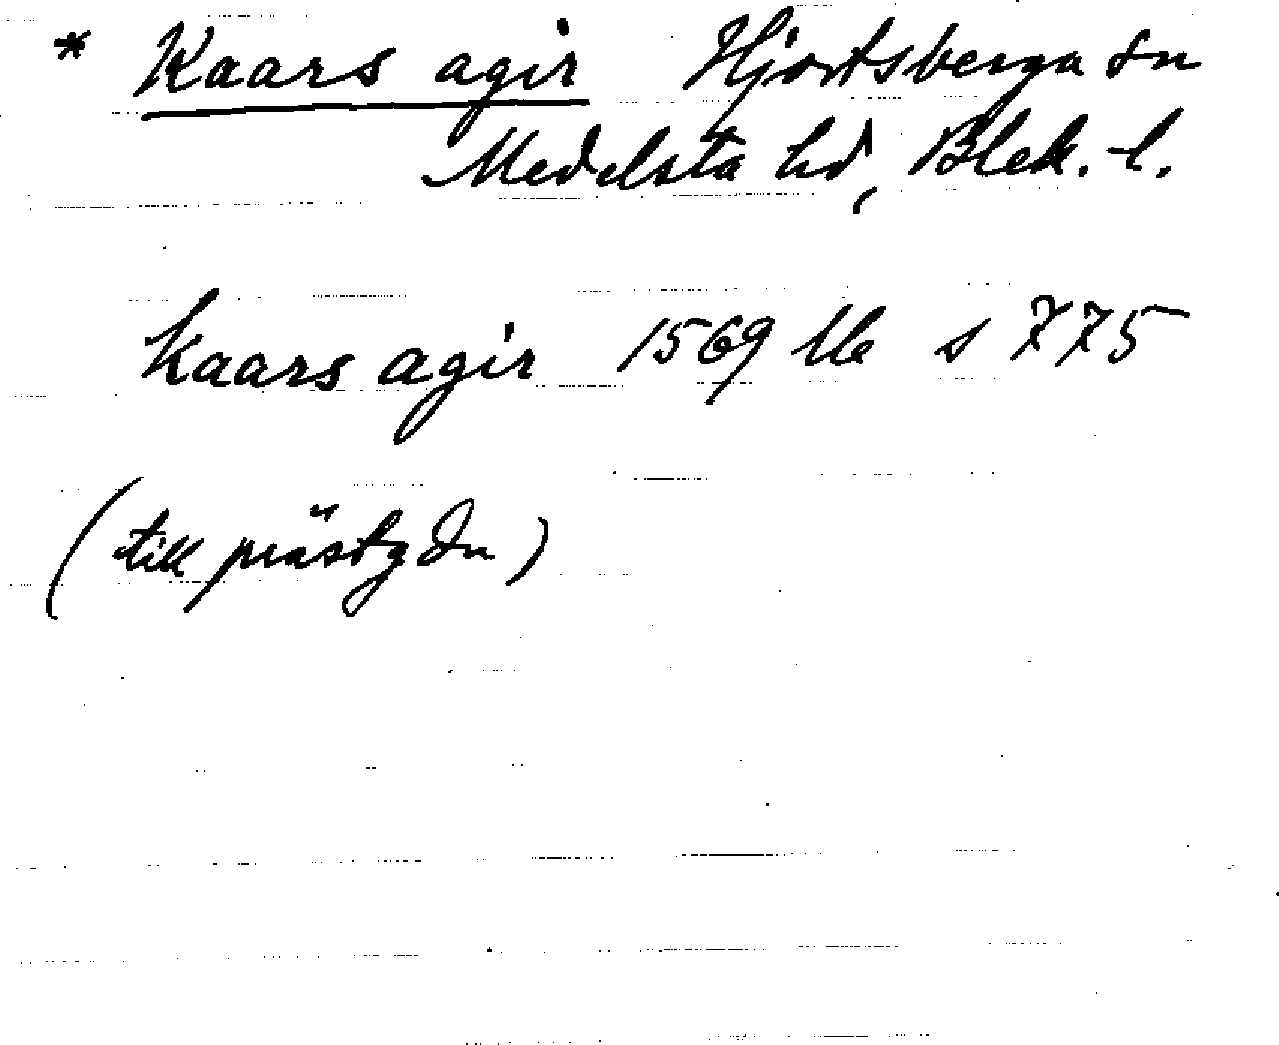 * Kaars agir Hjortsberga sn
Medelsta hd, Blek. l.
Kaars agir 1569 Mb s 775
(till prästgdn)